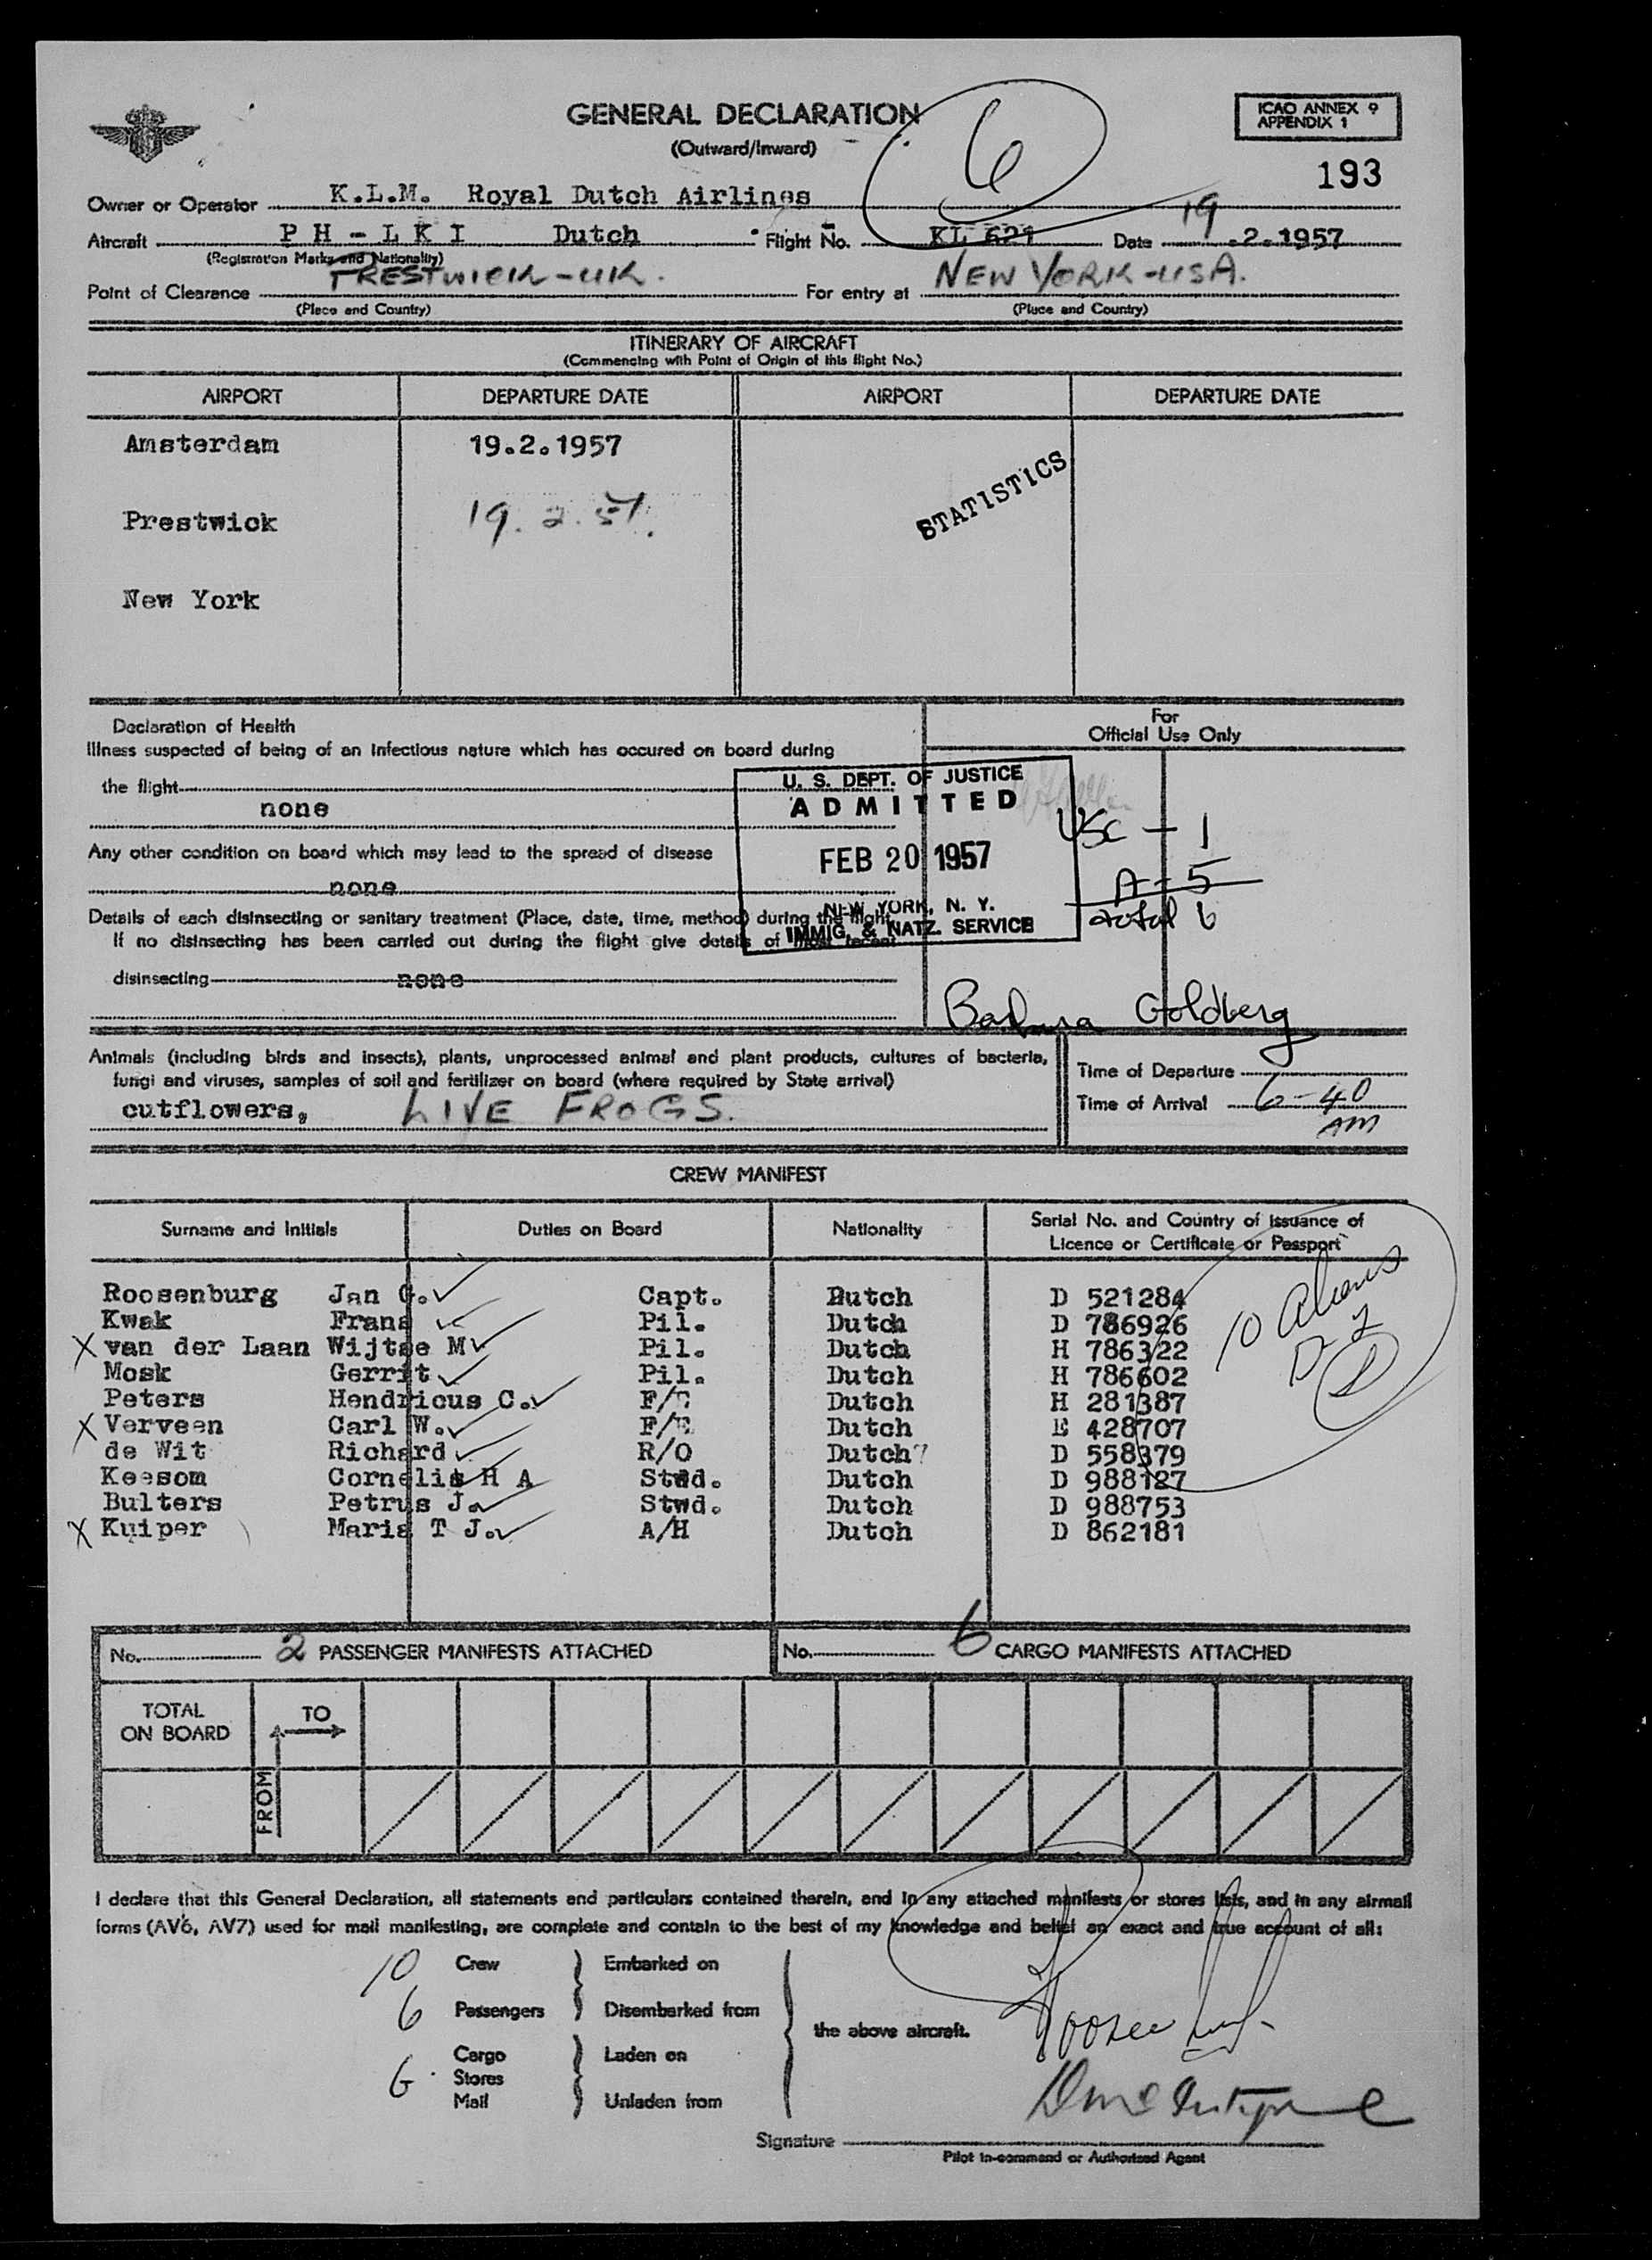 GENERAL DECLARATION
(Outward/Inward)
6
ICAO ANNEX 9
APPENDIX 1
193
Owner or Operator K.L.M. Royal Dutch Airlines
Aircraft PH-LKI Dutch Flight No. KL 621 Date 19.2.1957
(Registration Marks and Nationality)
Point of Clearance PRESTWICK-UK. For entry at NEW YORK-USA.
(Place and Country) (Place and Country)
ITINERARY OF AIRCRAFT
(Commencing with Point of Origin of this flight No.)
AIRPORT DEPARTURE DATE AIRPORT DEPARTURE DATE
Amsterdam 19.2.1957
STATISTICS
Prestwick 19.2.57.
New York
Declaration of Health
Illness suspected of being of an infectious nature which has occured on board during
the flight
none
Any other condition on board which may lead to the spread of disease
none
Details of each disinsecting or sanitary treatment (Place, date, time, method) during the flight.
If no disinsecting has been carried out during the flight give details of most recent
disinsecting none
For
Official Use Only
U. S. DEPT. OF JUSTICE
ADMITTED
FEB 20 1957
NEW YORK, N. Y.
IMMIG. & NATZ. SERVICE
USC - 1
A - 5
total 6
Barbara Goldberg
Animals (including birds and insects), plants, unprocessed animal and plant products, cultures of bacteria,
fungi and viruses, samples of soil and fertilizer on board (where required by State arrival)
cutflowers, LIVE FROGS.
Time of Departure
Time of Arrival 6-40
AM
CREW MANIFEST
Surname and Initials Duties on Board Nationality Serial No. and Country of Issuance of
Licence or Certificate or Passport
Roosenburg Jan G. Capt. Dutch D 521284
Kwak Frans Pil. Dutch D 786926
X van der Laan Wijtse M Pil. Dutch H 786322
Mosk Gerrit Pil. Dutch H 786602
Peters Hendricus C. F/E Dutch H 281387
X Verveen Carl W. F/E Dutch E 428707
de Wit Richard R/O Dutch D 558379
Keesom Cornelis H A Stwd. Dutch D 988127
Bulters Petrus J. Stwd. Dutch D 988753
X Kuiper Maria T J. A/H Dutch D 862181
10 Aliens
No. 2 PASSENGER MANIFESTS ATTACHED No. 6 CARGO MANIFESTS ATTACHED
TOTAL
ON BOARD
TO
FROM
I declare that this General Declaration, all statements and particulars contained therein, and in any attached manifests or stores lists, and in any airmail
forms (AV6, AV7) used for mail manifesting, are complete and contain to the best of my knowledge and belief an exact and true account of all:
10 Crew Embarked on
6 Passengers Disembarked from
the above aircraft.
Cargo Laden on
6 Stores
Mail Unladen from
Signature
Pilot in-command or Authorised Agent